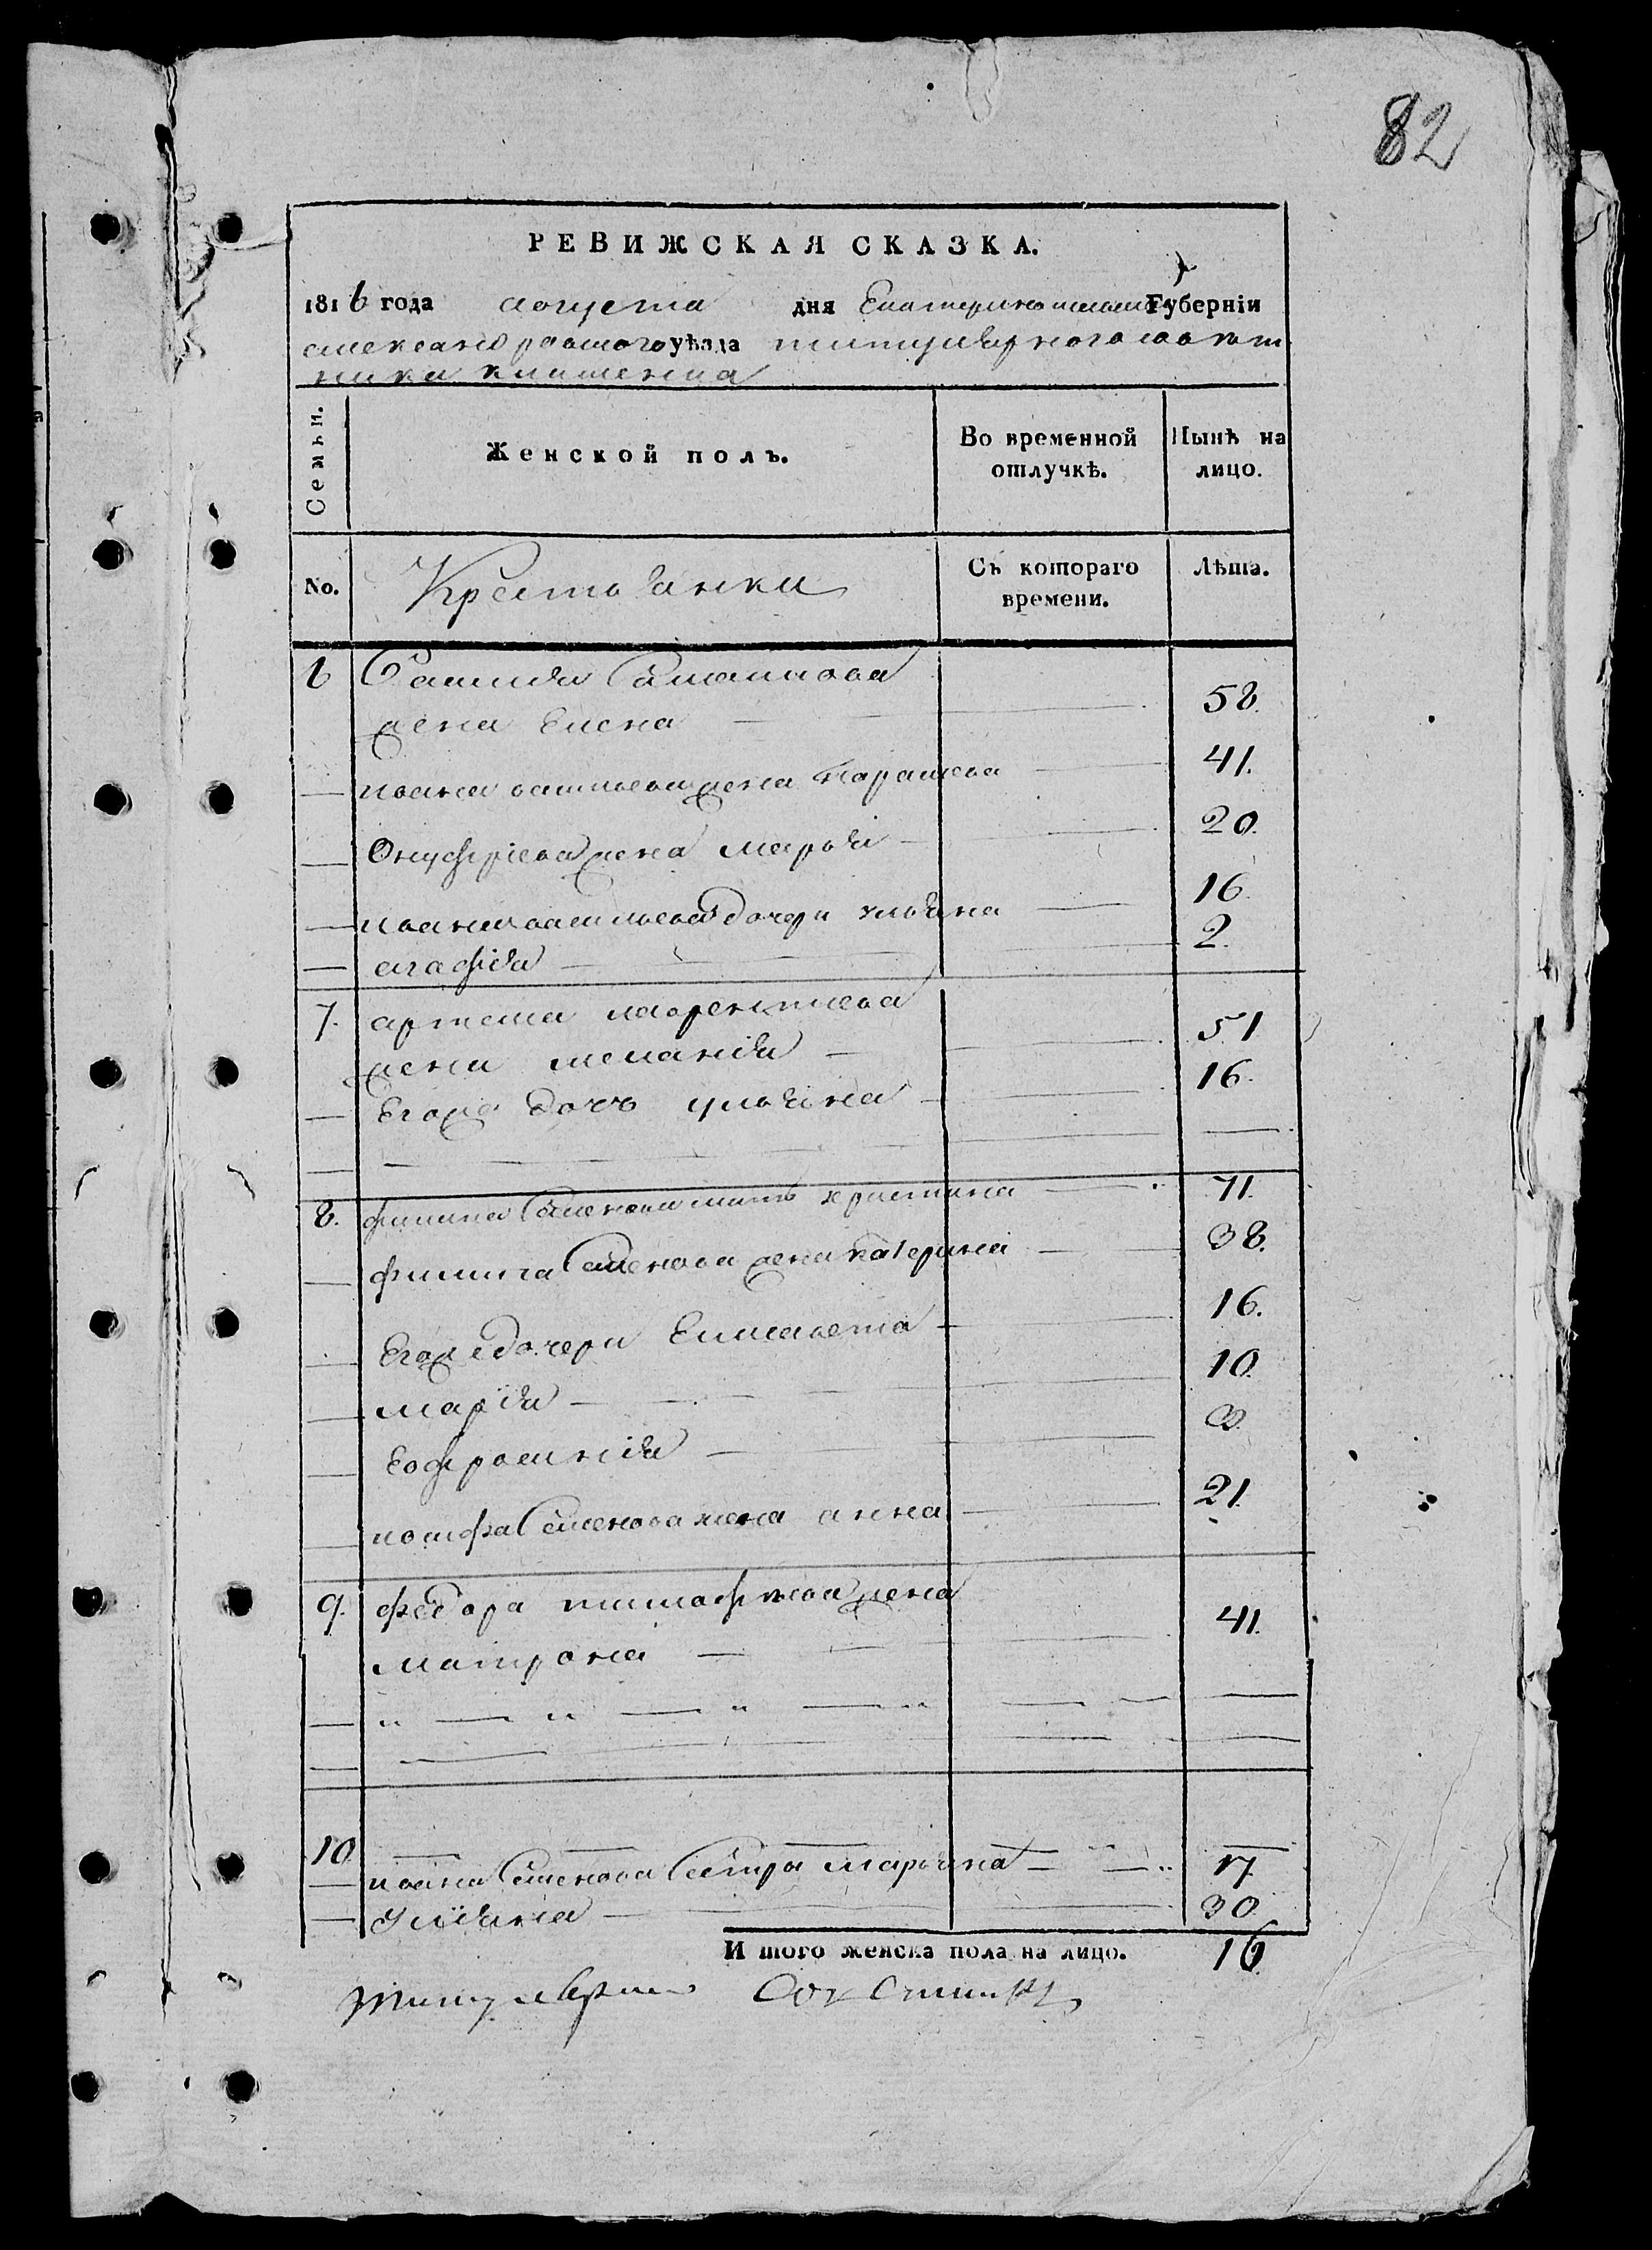 82
РЕВИЖСКАЯ СКАЗКА.
1816 года августа дня Екатеринославской Губернїи
александровского уѣзда титулярного совѣт
ника
Семьи.
Женской полъ.
Во временной
отлучкѣ.
Нынѣ на
лицо.
No.
Крестьянки
Съ котораго
времени.
Лѣта.
6
жена Елена 58.
ивана васильева жена Парасковя 41.
Онуфрїева жена марья 20.
ивана васильева дочери ульяна 16.
агафїя 2.
7. артема лаврентиева
жена меланїя 51
Егоже дочь ульяна 16.
8. филипа Семенова мать христина 71.
филипа Семенова жена катерина 38.
Егоже дочери Елисавета 16.
марїя 10.
Ефросинїя 3.
иосифа Семенова жена анна 21.
9. федора тимофеева жена
матрона 41.
10.
ивана Семенова Сестра марьяна 17
Улїяна 30
И того женска пола на лицо. 16